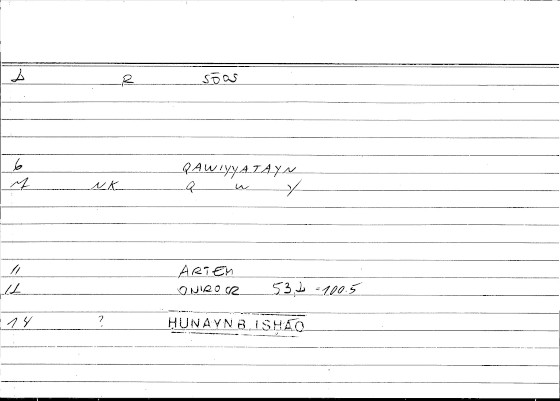 R SŌOS
6 QAWIYYATAYN
NK Q W Y
11 ARTEM
12 ONIROCR 53, = 100.5
14 ? HUNAYN B. ISHĀQ